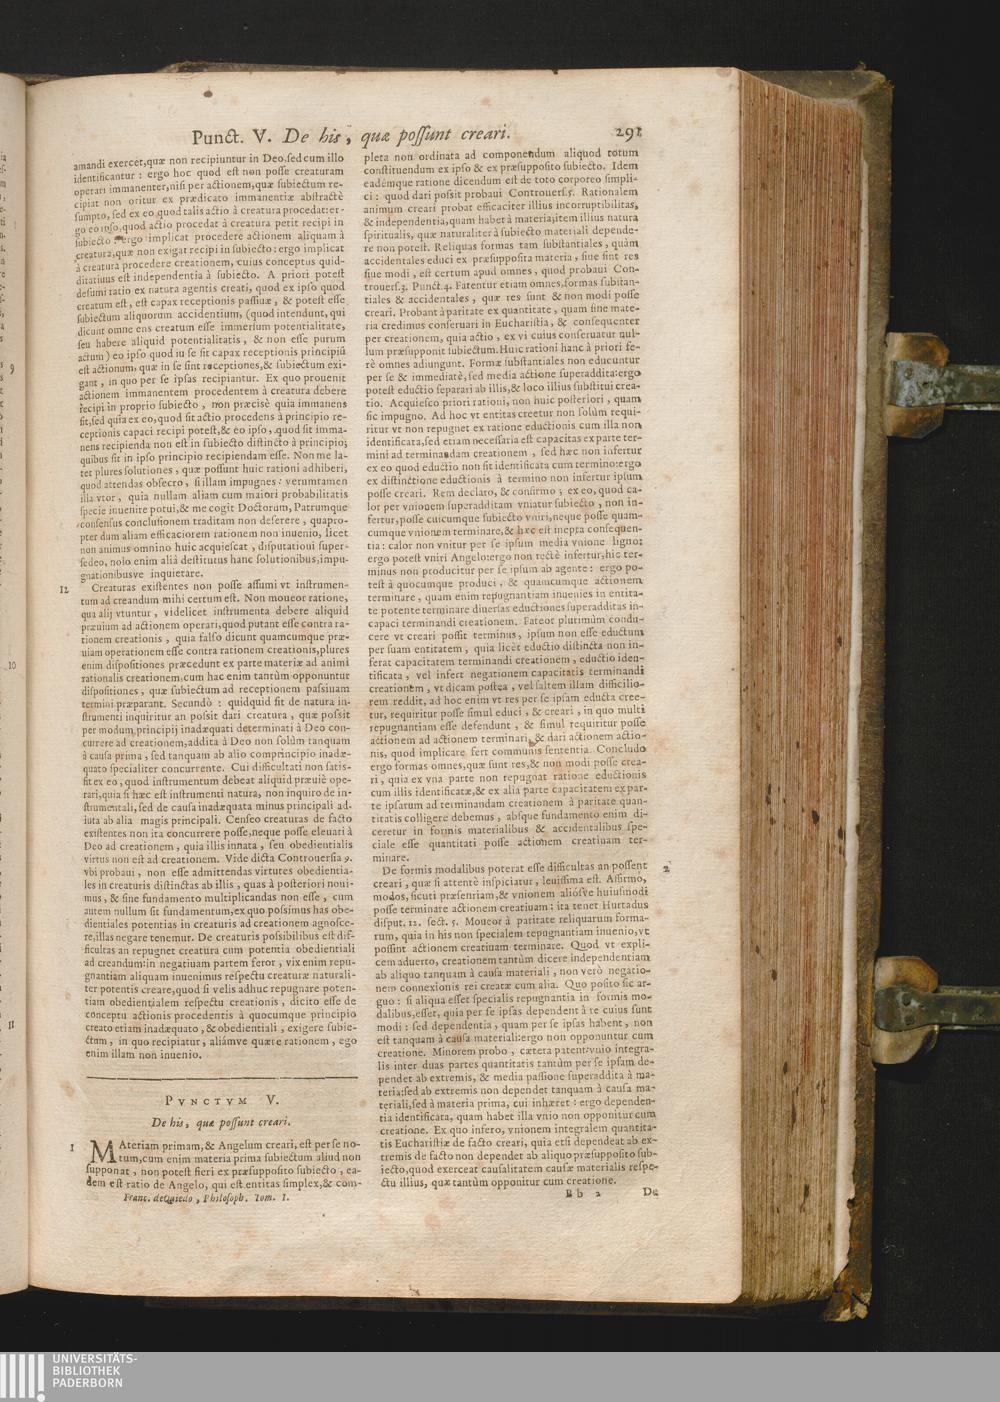 Punct. V. De his, quæ possunt creari. 291
amandi exercet, quæ non recipiuntur in Deo. sed cum illo
identificantur : ergo hoc quod est non posse creaturam
operari immanenter, nisi per actionem, quæ subiectum re-
cipiat non oritur ex prædicato immanentiæ abstractè
sumpto, sed ex eo quod talis actio à creatura procedat: er-
go eo ipso, quod actio procedat à creatura petit recipi in
subiecto : ergo implicat procedere actionem aliquam à
creatura, quæ non exigat recipi in subiecto: ergo implicat
à creatura procedere creationem, cuius conceptus quid-
ditatiuus est independentia à subiecto. A priori potest
desumi ratio ex natura agentis creati, quod ex ipso quod
creatum est, est capax receptionis passiuæ, & potest esse
subiectum aliquorum accidentium, (quod intendunt, qui
dicunt omne ens creatum esse immersum potentialitate,
seu habere aliquid potentialitatis, & non esse purum
actum) eo ipso quod iu se sit capax receptionis principiũ
est actionum, quæ in se sint receptiones, & subiectum exi-
gant, in quo per se ipsas recipiantur. Ex quo prouenit
actionem immanentem procedentem à creatura debere
recipi in proprio subiecto, non præcisè quia immanens
sit, sed quia ex eo, quod sit actio procedens à principio re-
ceptionis capaci recipi potest, & eo ipso, quod sit imma-
nens recipienda non est in subiecto distincto à principio;
quibus sit in ipso principio recipiendam esse. Non me la-
tet plures solutiones, quæ possunt huic rationi adhiberi,
quod attendas obsecro, si illam impugnes : verumtamen
illa vtor, quia nullam aliam cum maiori probabilitatis
specie inuenire potui, & me cogit Doctorum, Patrumque
consensus conclusionem traditam non deserere, quapro-
pter dum aliam efficaciorem rationem non inuenio, licet
non animus omnino huic acquiescat, disputatioui super-
sedeo, nolo enim aliâ destitutus hanc solutionibus, impu-
gnationibusve inquietare.
12 Creaturas existentes non posse assumi vt instrumen-
tum ad creandum mihi certum est. Non moueor ratione,
qua alij vtuntur, videlicet instrumenta debere aliquid
præuium ad actionem operari, quod putant esse contra ra-
tionem creationis, quia falso dicunt quamcumque præ-
uiam operationem esse contra rationem creationis, plures
enim dispositiones præcedunt ex parte materiæ ad animi
rationalis creationem, cum hac enim tantùm opponuntur
dispositiones, quæ subiectum ad receptionem passiuam
termini præparant. Secundò : quidquid sit de natura in-
strumenti inquiritur an possit dari creatura, quæ possit
per modum principij inadæquati determinati à Deo con-
currere ad creationem, addita à Deo non solùm tanquam
à causa prima, sed tanquam ab alio comprincipio inadæ-
quato specialiter concurrente. Cui difficultati non satis-
fit ex eo, quod instrumentum debeat aliquid præuiè ope-
rari, quia si hæc est instrumenti natura, non inquiro de in-
strumentali, sed de causa inadæquata minus principali ad-
iuta ab alia magis principali. Censeo creaturas de facto
existentes non ita concurrere posse, neque posse eleuari à
Deo ad creationem, quia illis innata, seu obedientialis
virtus non est ad creationem. Vide dicta Controuersia 9.
vbi probaui, non esse admittendas virtutes obedientia-
les in creaturis distinctas ab illis, quas à posteriori noui-
mus, & sine fundamento multiplicandas non esse, cum
autem nullum sit fundamentum, ex quo possimus has obe-
dientiales potentias in creaturis ad creationem agnosce-
re, illas negare tenemur. De creaturis possibilibus est dif-
ficultas an repugnet creatura cum potentia obedientiali
ad creandum: in negatiuam partem feror, vix enim repu-
gnantiam aliquam inuenimus respectu creaturæ naturali-
ter potentis creare, quod si velis adhuc repugnare poten-
tiam obedientialem respectu creationis, dicito esse de
conceptu actionis procedentis à quocumque principio
creato etiam inadæquato, & obedientiali, exigere subie-
ctum, in quo recipiatur, aliámve quære rationem, ego
enim illam non inuenio.
PVNCTVM V.
De his, quæ possunt creari.
1 MAteriam primam, & Angelum creari, est per se no-
tum, cum enim materia prima subiectum aliud non
supponat, non potest fieri ex præsupposito subiecto, ea-
dem est ratio de Angelo, qui est entitas simplex, & com-
Franc. de Quiedo, Philosoph. Tom. I.
pleta non ordinata ad componendum aliquod totum
constituendum ex ipso & ex præsupposito subiecto. Idem
eadémque ratione dicendum est de toto corporeo simpli-
ci : quod dari possit probaui Controuers. 5. Rationalem
animum creari probat efficaciter illius incorruptibilitas,
& independentia, quam habet à materia; item illius natura
spiritualis, quæ naturaliter à subiecto materiali depende-
re non potest. Reliquas formas tam substantiales, quàm
accidentales educi ex præsupposita materia, siue sint res
siue modi, est certum apud omnes, quod probaui Con-
trouers. 3. Punct. 4. Fatentur etiam omnes, formas substan-
tiales & accidentales, quæ res sunt & non modi posse
creari. Probant à paritate ex quantitate, quam sine mate-
ria credimus conseruari in Eucharistia, & consequenter
per creationem, quia actio, ex vi cuius conseruatur nul-
lum præsupponit subiectum. Huic rationi hanc à priori fe-
rè omnes adiungunt. Formæ substantiales non educuntur
per se & immediatè, sed media actione superaddita: ergo
potest eductio separari ab illis, & loco illius substitui crea-
tio. Acquiesco priori rationi, non huic posteriori, quam
sic impugno. Ad hoc vt entitas creetur non solùm requi-
ritur vt non repugnet ex ratione eductionis cum illa non
identificata, sed etiam necessaria est capacitas ex parte ter-
mini ad terminandam creationem, sed hæc non infertur
ex eo quod eductio non sit identificata cum termino: ergo
ex distinctione eductionis à termino non infertur ipsum
posse creari. Rem declaro, & confirmo; ex eo, quod ca-
lor per vnionem superadditam vniatur subiecto, non in-
fertur, posse cuicumque subiecto vniri, neque posse quam-
cumque vnionem terminare, & hæc est inepta consequen-
tia : calor non vnitur per se ipsum media vnione ligno:
ergo potest vniri Angelo: ergo non rectè infertur, hic ter-
minus non producitur per se ipsum ab agente : ergo po-
test à quocumque produci, & quamcumque actionem
terminare, quam enim repugnantiam inuenies in entita-
te potente terminare diuersas eductiones superadditas in-
capaci terminandi creationem. Fateor plurimùm condu-
cere vt creari possit terminus, ipsum non esse eductum
per suam entitatem, quia licet eductio distincta non in-
ferat capacitatem terminandi creationem, eductio iden-
tificata, vel infert negationem capacitatis terminandi
creationem, vt dicam postea, vel saltem illam difficilio-
rem reddit, ad hoc enim vt res per se ipsam educta cree-
tur, requiritur posse simul educi, & creari, in quo multi
repugnantiam esse defendunt, & simul requiritur posse
actionem ad actionem terminari, & dari actionem actio-
nis, quod implicare fert communis sententia. Concludo
ergo formas omnes, quæ sunt res, & non modi posse crea-
ri, quia ex vna parte non repugnat ratione eductionis
cum illis identificatæ, & ex alia parte capacitatem ex par-
te ipsarum ad terminandam creationem à paritate quan-
titatis colligere debemus, absque fundamento enim di-
ceretur in formis materialibus & accidentalibus spe-
ciale esse quantitati posse actionem creatiuam ter-
minare.
De formis modalibus poterat esse difficultas an possent 2
creari, quæ si attentè inspiciatur, leuissima est. Affirmo,
modos, sicuti præsentiam, & vnionem aliósve huiusmodi
posse terminare actionem creatiuam : ita tenet Hurtadus
disput. 12. sect. 5. Moueor à paritate reliquarum forma-
rum, quia in his non specialem repugnantiam inuenio, vt
possint actionem creatiuam terminare. Quod vt expli-
cem aduerto, creationem tantùm dicere independentiam
ab aliquo tanquam à causa materiali, non verò negatio-
nem connexionis rei creatæ cum alia. Quo posito sic ar-
guo : si aliqua esset specialis repugnantia in formis mo-
dalibus, esset, quia per se ipsas dependent à re cuius sunt
modi : sed dependentia, quam per se ipsas habent, non
est tanquam à causa materiali: ergo non opponuntur cum
creatione. Minorem probo, cætera patent: vnio integra-
lis inter duas partes quantitatis tantùm per se ipsam de-
pendet ab extremis, & media passione superaddita à ma-
teria: sed ab extremis non dependet tanquam à causa ma-
teriali, sed à materia prima, cui inhæret : ergo dependen-
tia identificata, quam habet illa vnio non opponitur cum
creatione. Ex quo infero, vnionem integralem quantita-
tis Eucharistiæ de facto creari, quia etsi dependeat ab ex-
tremis de facto non dependet ab aliquo præsupposito sub-
iecto, quod exerceat causalitatem causæ materialis respe-
ctu illius, quæ tantùm opponitur cum creatione.
Bb 2 De
9
10
11
UNIVERSITÄTS-
BIBLIOTHEK
PADERBORN